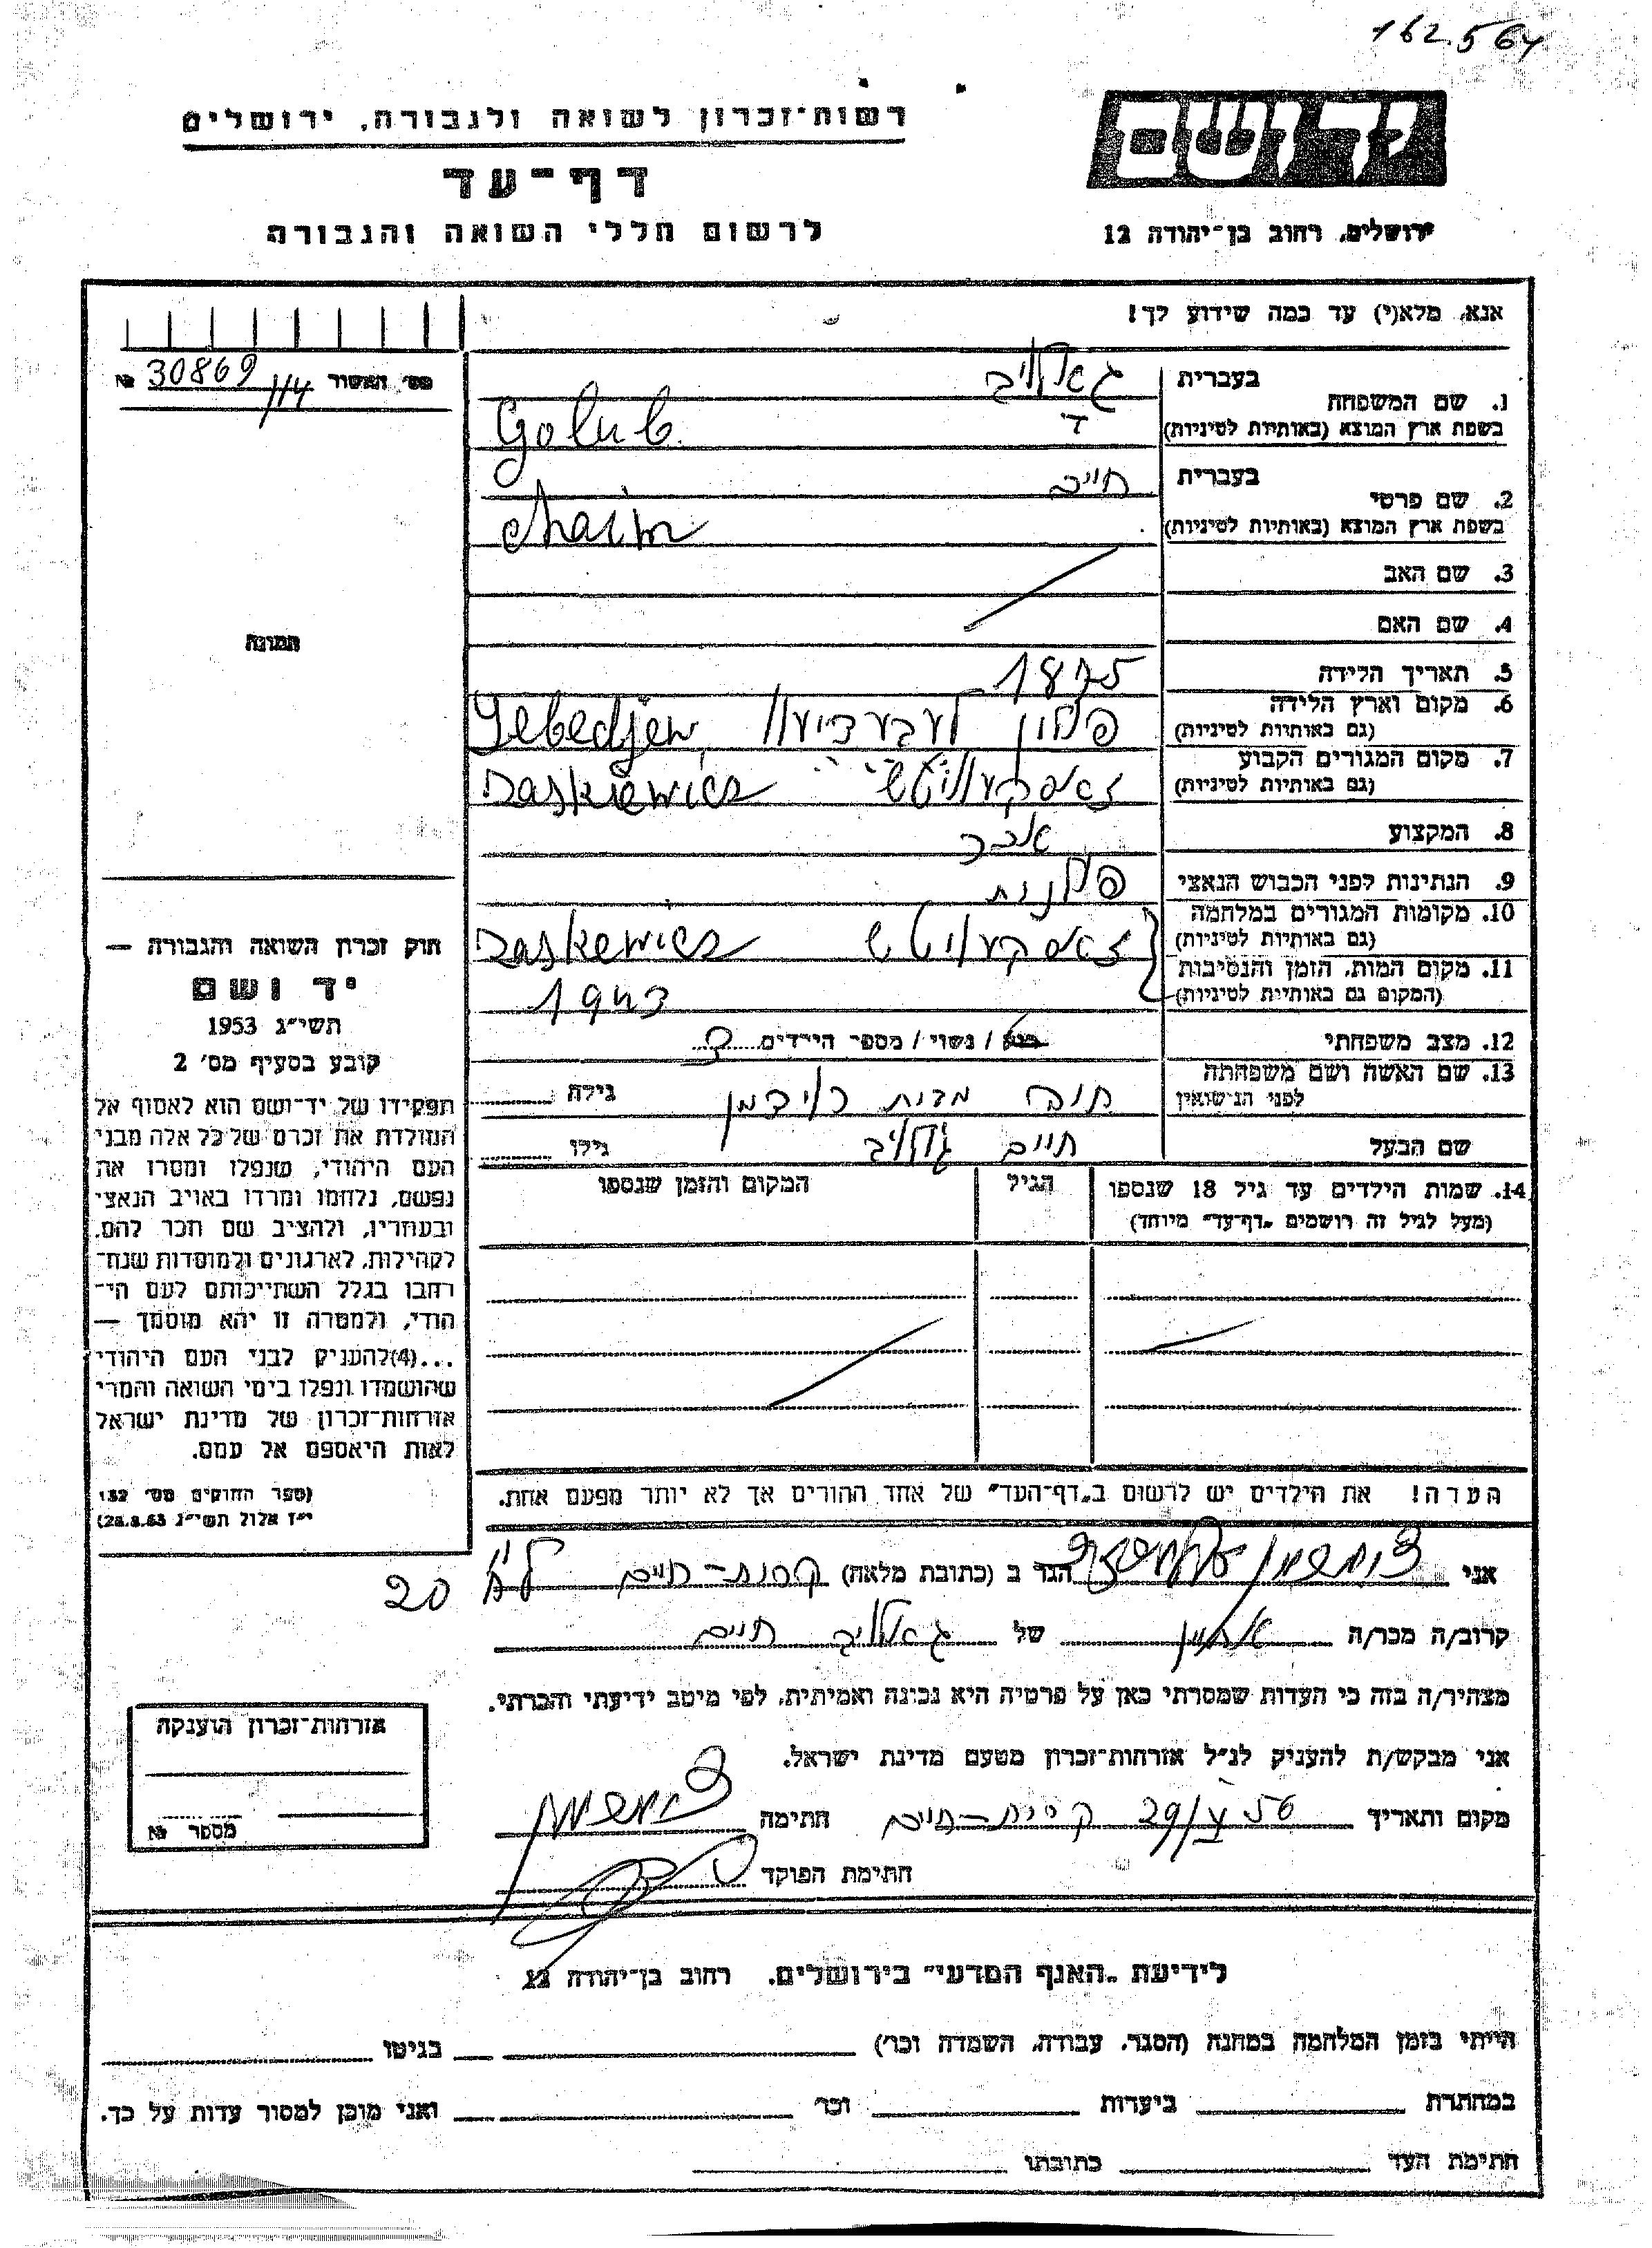 162.564
רשות־זכרון לשואה ולגבורה, ירושלים
דף־עד
לרשום חללי השואה והגבורה
יד ושם
ירושלים, רחוב בן־יהודה 12
אנא, מלא(י) עד כמה שידוע לך!
מס׳ האשור 30869/114 №
1. שם המשפחה
בעברית
בשפת ארץ המוצא (באותיות לטיניות) Golub
2. שם פרטי
בעברית חיים
בשפת ארץ המוצא (באותיות לטיניות) Chaim
3. שם האב
4. שם האם
5. תאריך הלידה 1875
6. מקום וארץ הלידה פולין לעבעדיעוו Lebedjew,
(גם באותיות לטיניות)
7. מקום המגורים הקבוע זאסקעוויטש Saskiewicz
(גם באותיות לטיניות)
8. המקצוע
9. הנתינות לפני הכבוש הנאצי פולנית
10. מקומות המגורים במלחמה
(גם באותיות לטיניות) זאסקעוויטש Saskewicz
11. מקום המות, הזמן והנסיבות
(המקום גם באותיות לטיניות) 1942
12. מצב משפחתי רוק / נשוי / מספר הילדים
13. שם האשה ושם משפחתה
לפני הנישואין חובה מבית גילה
שם הבעל חיים גולוב גילו
14. שמות הילדים עד גיל 18 שנספו
(מעל לגיל זה רושמים „דף־עד״ מיוחד)
הגיל
המקום והזמן שנספו
הערה! את הילדים יש לרשום ב„דף־העד״ של אחד ההורים אך לא יותר מפעם אחת.
תמונה
חוק זכרון השואה והגבורה —
יד ושם
תשי״ג 1953
קובע בסעיף מס׳ 2
תפקידו של יד־ושם הוא לאסוף אל
המולדת את זכרם של כל אלה מבני
העם היהודי, שנפלו ומסרו את
נפשם, נלחמו ומרדו באויב הנאצי
ובעוזריו, ולהציב שם וזכר להם,
לקהילות, לארגונים ולמוסדות שנח־
רבו בגלל השתייכותם לעם הי־
הודי, ולמטרה זו יהא מוסמך —
...(4)להעניק לבני העם היהודי
שהושמדו ונפלו בימי השואה והמרי
אזרחות־זכרון של מדינת ישראל
לאות היאספם אל עמם.
(ספר החוקים מס׳ 132
י״ז אלול תשי״ג 28.8.53)
אני הגר ב (כתובת מלאה) קרית־חיים 20
קרוב/ה מכר/ה של גאלוב חיים
מצהיר/ה בזה כי העדות שמסרתי כאן על פרטיה היא נכונה ואמיתית, לפי מיטב ידיעתי והכרתי.
אני מבקש/ת להעניק לנ״ל אזרחות־זכרון מטעם מדינת ישראל.
מקום ותאריך 29/V 56 קרית־חיים חתימה
חתימת הפוקד
אזרחות־זכרון הוענקה
מספר №
לידיעת „האנף המדעי״ בירושלים. רחוב בן־יהודה 12
הייתי בזמן המלחמה במחנה (הסגר, עבודה, השמדה וכו׳) בגיטו
במחתרת ביערות וכו׳ ואני מוכן למסור עדות על כך.
חתימת העד כתובתו